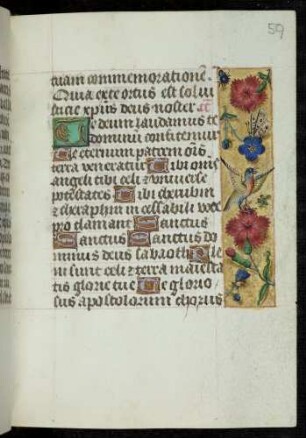 59
tuam commemoratione.
Quia ex te ortus est sol iu
sticie xp̄us deus noster
Te deum laudamus te
dominū confitemur
Te eternum patrem om̄s
terra veneratur Tibi om̄s
angeli tibi celi et vniuerse
potestates Tibi cherubin
et seraphin incessabili voce
proclamant Sanctus
Sanctus Sanctus do
minus deus sabaoth Ple
ni sunt celi et terra maiesta
tis glorie tue Te glorio
sus apostolorum chorus